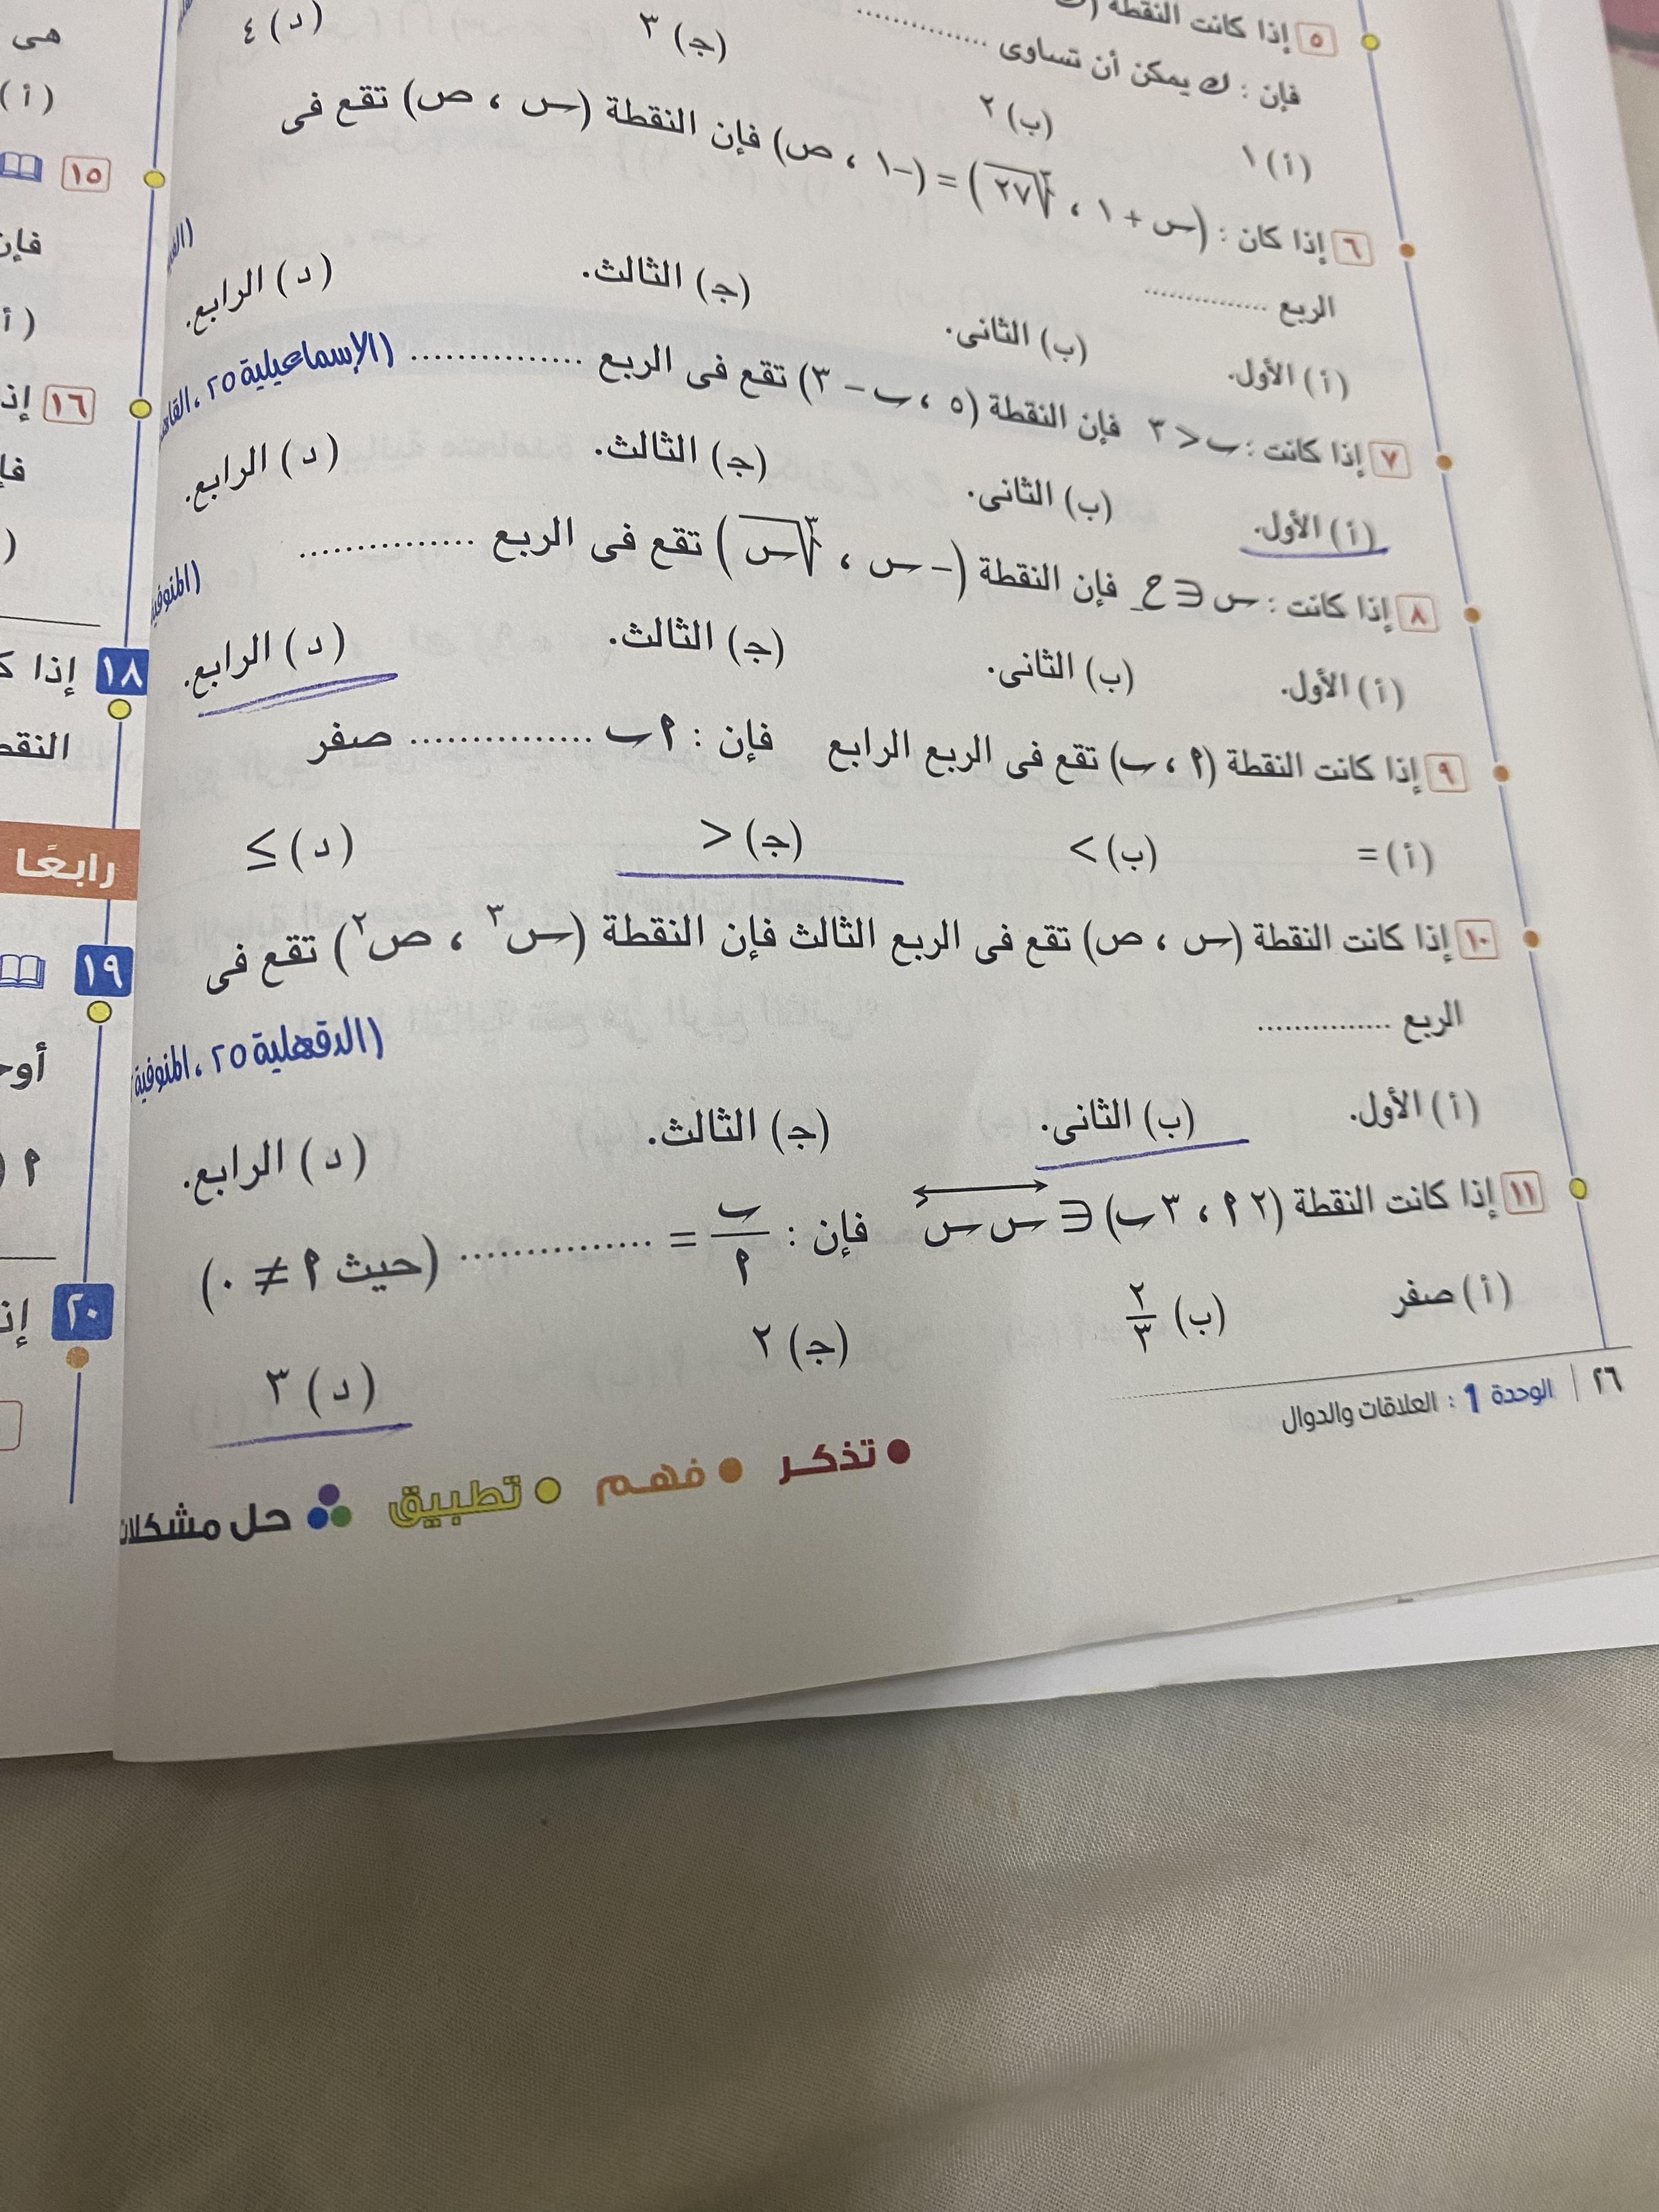 ٥ إذا كانت النقطة
فإن : ك يمكن أن تساوى ..............
(أ) ١ (ب) ٢ (جـ) ٣ (د) ٤
٦ إذا كان : (س + ١ ، ∛٢٧) = (−١ ، ص) فإن النقطة (س ، ص) تقع فى
الربع ..............
(أ) الأول. (ب) الثانى. (جـ) الثالث. (د) الرابع.
٧ إذا كانت : ب < ٣ فإن النقطة (٥ ، ب − ٣) تقع فى الربع .............. (الإسماعيلية ٢٥ ،
(أ) الأول. (ب) الثانى. (جـ) الثالث. (د) الرابع.
٨ إذا كانت : س ∈ ح₋ فإن النقطة (−س ، ∛س) تقع فى الربع .............. (المنوفية
(أ) الأول. (ب) الثانى. (جـ) الثالث. (د) الرابع.
٩ إذا كانت النقطة (أ ، ب) تقع فى الربع الرابع فإن : أ ب .............. صفر
(أ) = (ب) < (جـ) > (د) ≤
١٠ إذا كانت النقطة (س ، ص) تقع فى الربع الثالث فإن النقطة (س³ ، ص²) تقع فى
الربع .............. (الدقهلية ٢٥ ، المنوفية
(أ) الأول. (ب) الثانى. (جـ) الثالث. (د) الرابع.
١١ إذا كانت النقطة (٢ أ ، ٣ ب) ∈ س س فإن : ب/أ = .............. (حيث أ ≠ ٠)
(أ) صفر (ب) ٢/٣ (جـ) ٢ (د) ٣
٢٦ | الوحدة 1 : العلاقات والدوال
تذكر فهم تطبيق حل مشكلات
هى
(أ)
١٥
فإن
(أ
١٦ إذ
فإ
١٨ إذا ك
النقط
رابعًا
١٩
أوج
٢٠ إذ